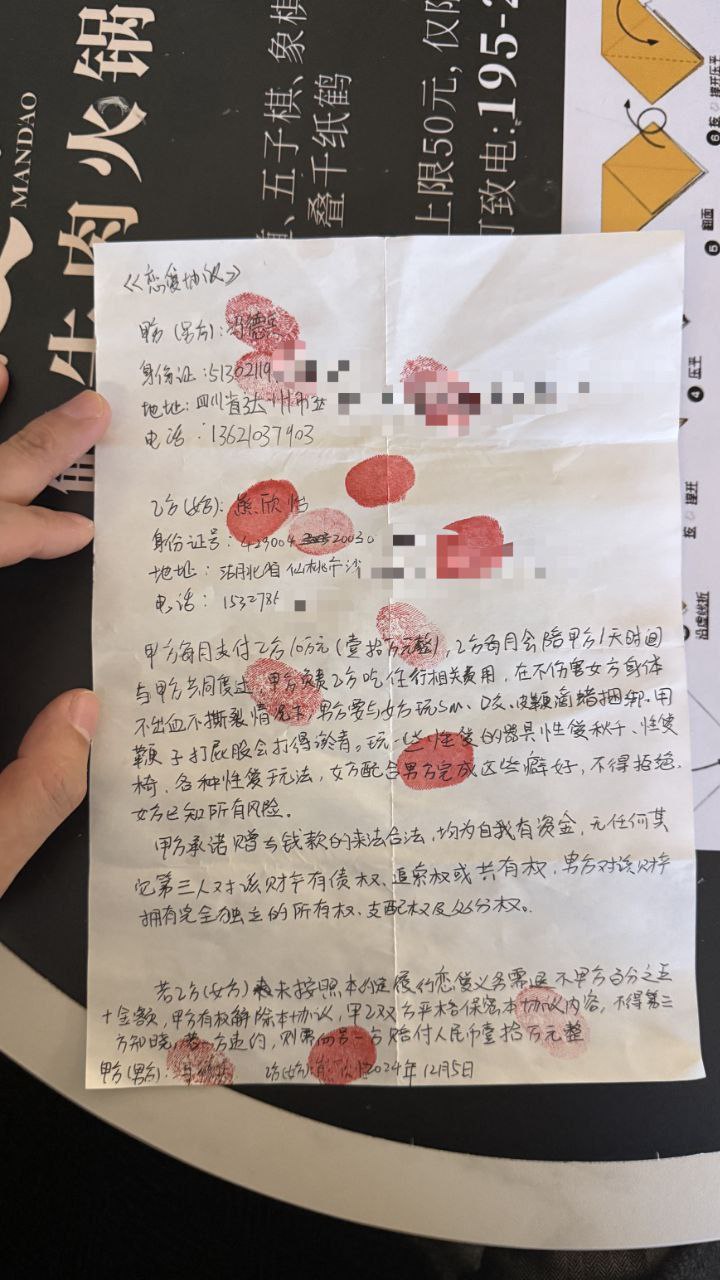 MANDAO
牛肉火锅
五子棋、象棋
叠千纸鹤
上限50元,仅限
致电:195-2
《恋爱协议》
甲方(男方):
身份证:51302119
地址:四川省达州市
电话:13621037903
乙方(女方):熊欣怡
身份证号:429004 20030
地址:湖北省仙桃市沙
电话:1532786
甲方每月支付乙方10万元(壹拾万元整),乙方每月会陪甲方1天时间
与甲方共同度过,甲方负责乙方吃住行相关费用,在不伤害女方身体
不出血不撕裂情况下,男方要与女方玩sm、皮鞭滴蜡捆绑.用
鞭子打屁股会打得淤青。玩一些性爱的器具性爱秋千、性爱
椅、各种性爱玩法,女方配合男方完成这些癖好,不得拒绝.
女方已知所有风险。
甲方承诺赠与钱款的来法合法,均为自我有资金,无任何其
它第三人对该财产有债权、追索权或共有权,男方对该财产
拥有完全独立的所有权、支配权及处分权。
若乙方(女方)未按照本约定履行恋爱义务需退还甲方百分之五
十金额,甲方有权解除本协议,甲乙双方严格保密本协议内容,不得第三
方知晓,若一方违约,则需向另一方赔付人民币壹拾万元整
甲方(男方): 乙方(女方): 2024年12月5日
压平
翻面
撑开
沿虚线折
4
5
6